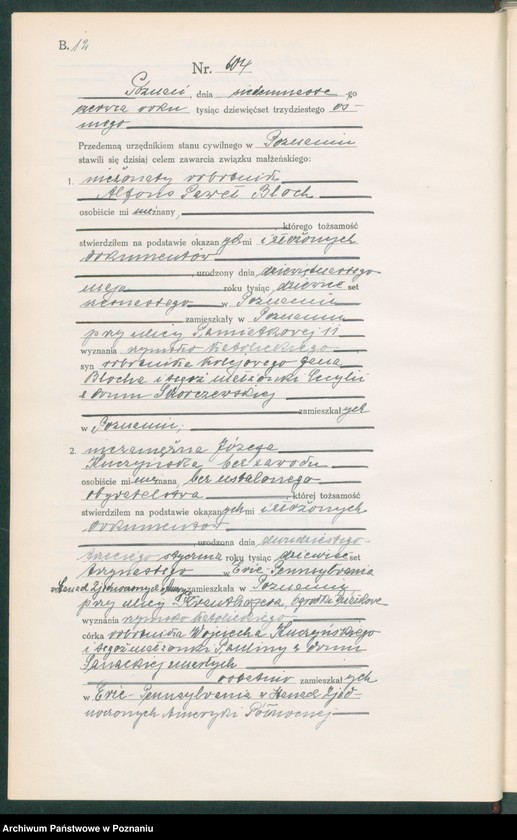 B. 12
Nr. 604
Poznań, dnia siedemnaste -go
czerwca roku tysiąc dziewięćset trzydziestego ós-
mego
Przedemną urzędnikiem stanu cywilnego w Poznaniu
stawili się dzisiaj celem zawarcia związku małżeńskiego:
1. nieżonaty robotnik
Alfons Paweł Bloch
osobiście mi nieznany,
, którego tożsamość
stwierdziłem na podstawie okazanych mi i złożonych
dokumentów
, urodzony dnia
maja roku tysiąc dziewięć set
w Poznaniu
zamieszkały w Poznaniu
przy ulicy Pamiątkowej 11
wyznania rzymsko katolickiego
syn robotnika kolejowego Jana
Blocha i tegoż małżonki Cecylii
z domu Skorczewskiej
zamieszkałych
w Poznaniu;
2. niezamężna Józefa
Kuczyńska bez zawodu
osobiście mi nieznana, bez ustalonego
obywatelstwa , której tożsamość
stwierdziłem na podstawie okazanych mi i złożonych
dokumentów
, urodzona dnia dwudziestego
trzeciego stycznia roku tysiąc dziewięć set
trzynastego w Erie Pennsylvania
zamieszkała w Poznaniu
przy ulicy
wyznania rzymsko katolickiego
córka robotnika Wojciecha Kuczyńskiego
i tegoż małżonki Pauliny z domu
zmarłych
ostatnio zamieszkałych
w Erie - Pennsylvania w Stanach Zjed-
noczonych Ameryki Północnej
Archiwum Państwowe w Poznaniu